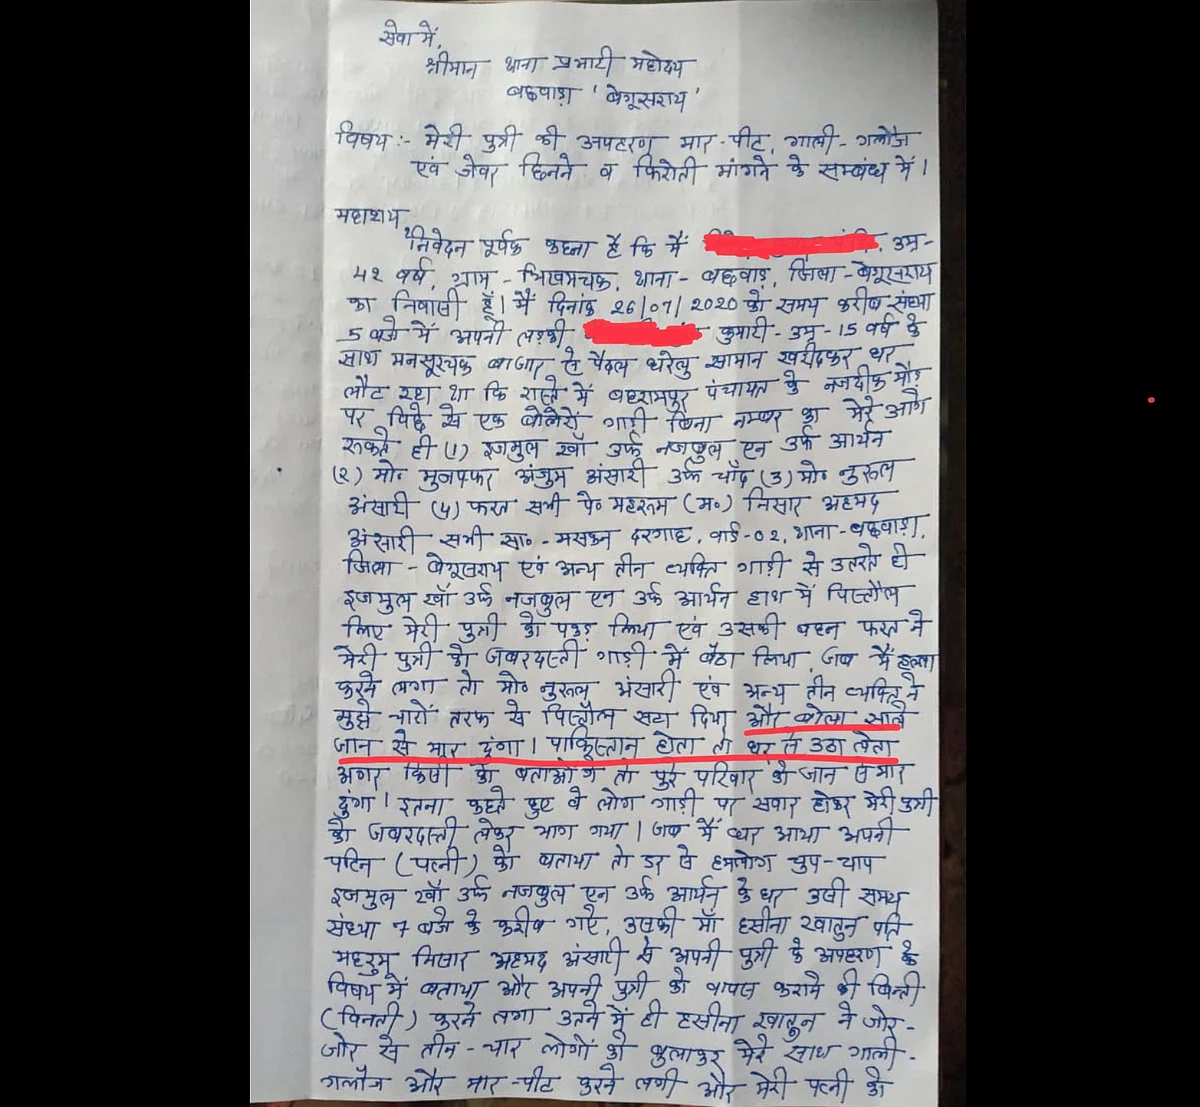 सेवा में,
श्रीमान थाना प्रभारी महोदय
बछवाड़ा 'बेगूसराय'
विषय:- मेरी पुत्री की अपहरण मार-पीट, गाली-गलौज
एवं जेवर छिनने व फिरोती मांगने के सम्बंध में।
महाशय,
निवेदन पूर्वक कहना है कि मैं उम्र-
42 वर्ष, ग्राम-भिखमचक, थाना-बछवाड़ा, जिला-बेगूसराय
का निवासी हूँ। मैं दिनांक 26/07/2020 को समय करीब संध्या
5 बजे मैं अपनी लड़की कुमारी-उम्र-15 वर्ष के
साथ मनसूरचक बाजार से पैदल घरेलु सामान खरीदकर घर
लौट रहा था कि रास्ते में बहरामपुर पंचायत के नजदीक मोड़
पर पिछे से एक बोलेरो गाड़ी बिना नम्बर का मेरे आगे
रूकते ही (१) इजमुल खाँ उर्फ नजबुल एन उर्फ आर्यन
(२) मो० मुजफ्फर अंजुम अंसारी उर्फ चाँद (३) मो० नुरूल
अंसारी (४) फरत सभी पे० महरूम (म०) निसार अहमद
अंसारी सभी सा०- दरगाह, वार्ड-02, थाना-बछवाड़ा,
जिला-बेगूसराय एवं अन्य तीन व्यक्ति गाड़ी से उतरते ही
इजमुल खाँ उर्फ नजबुल एन उर्फ आर्यन हाथ में पिस्तौल
लिए मेरी पुत्री को पकड़ लिया एवं उसकी बहन फरत ने
मेरी पुत्री को जबरदस्ती गाड़ी में बैठा लिया, जब मैं हल्ला
करने लगा तो मो० नुरूल अंसारी एवं अन्य तीन व्यक्ति ने
मुझे चारों तरफ से पिस्तौल सटा दिया और बोला साले
जान से मार दुंगा। पाकिस्तान होता तो घर से उठा लेता
अगर किसी को बताओगे तो पुरे परिवार को जान से मार
दुंगा। इतना कहते हुए वे लोग गाड़ी पर सवार होकर मेरी पुत्री
को जबरदस्ती लेकर भाग गया। जब मैं घर आया अपनी
पत्नि (पत्नी) को बताया तो डर से हमलोग चुप-चाप
इजमुल खाँ उर्फ नजबुल एन उर्फ आर्यन के घर उसी समय
संध्या 7 बजे के करीब गए, उसकी माँ हसीना खातुन पति
महरूम निसार अहमद अंसारी से अपनी पुत्री के अपहरण के
विषय में बताया और अपनी पुत्री को वापस कराने की बिन्ती
(विनती) करने लगा उतने में ही हसीना खातुन ने जोर-
जोर से तीन-चार लोगों को बुलाकर मेरे साथ गाली-
गलौज और मार-पीट करने लगी और मेरी पत्नी को